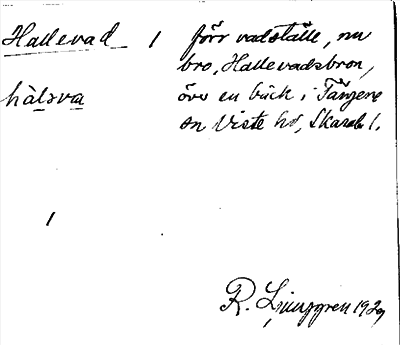 Hallevad / förr vadställe, nu
bro, Hallevadsbron,
hàlsva över en bäck i Tängene
sn Viste hd, Skarab l.
/
R. Ljunggren 1929